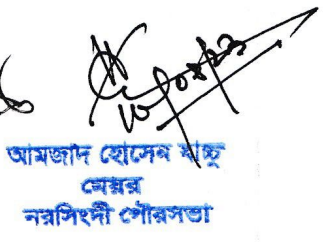 আমজাদ হোসেন বাচ্চু
মেয়র
নরসিংদী পৌরসভা